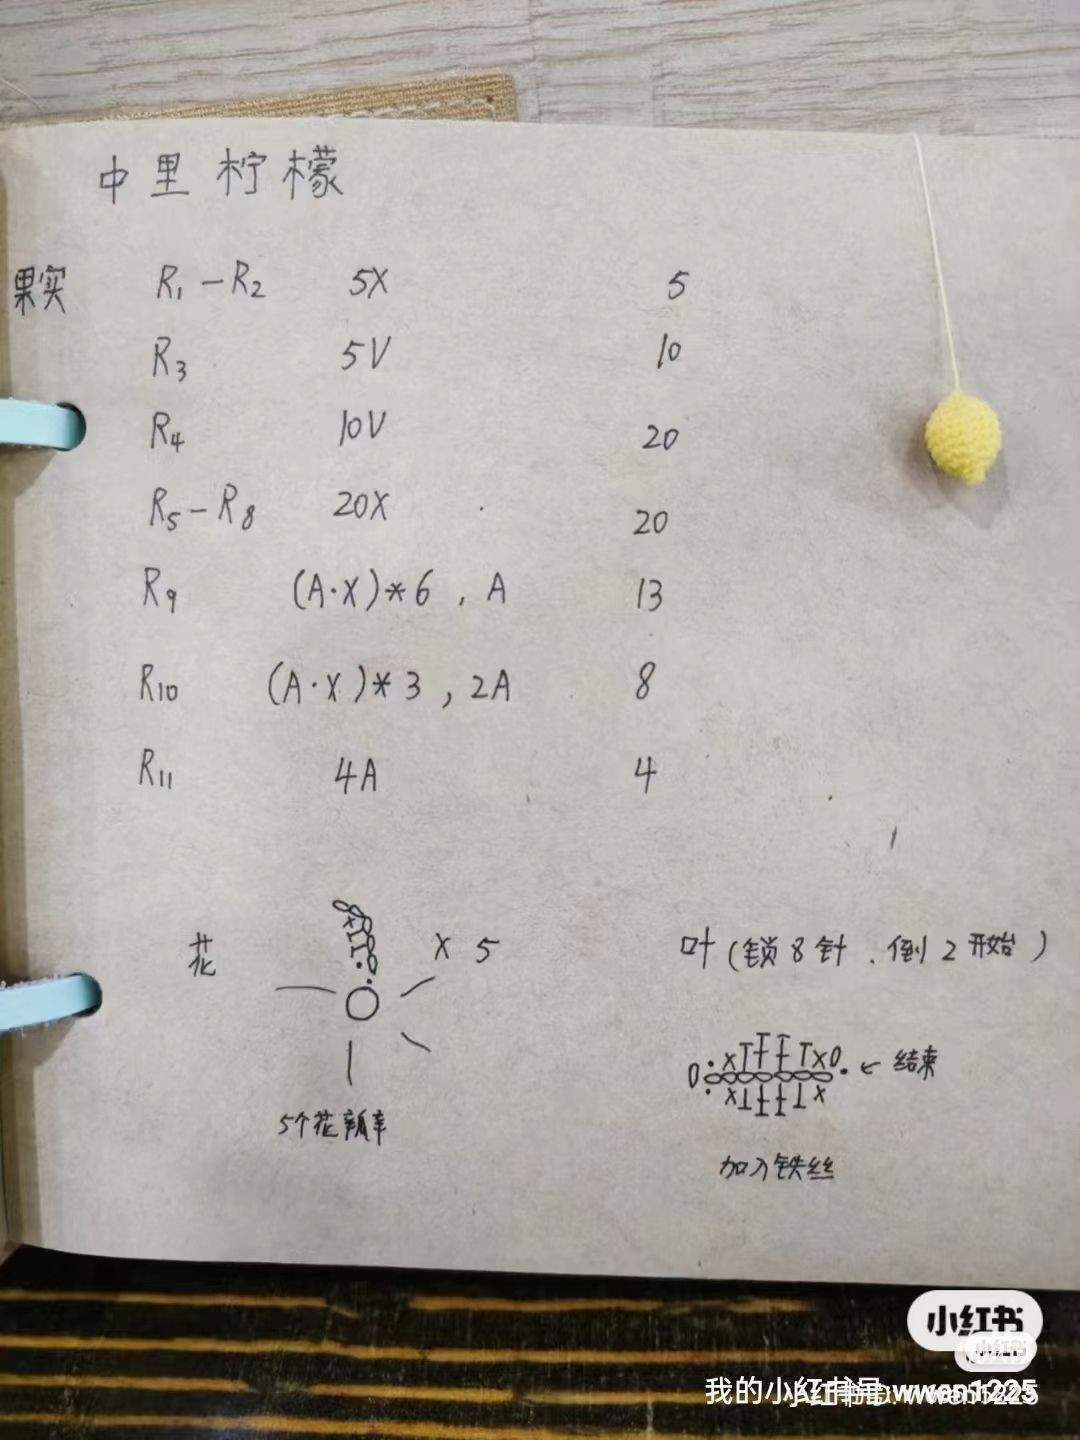 中里柠檬
果实 R1-R2 5X 5
R3 5V 10
R4 10V 20
R5-R8 20X 20
R9 (A·X)*6, A 13
R10 (A·X)*3, 2A 8
R11 4A 4
花 X 5
5个花瓣
叶(锁8针.倒2开始)
结束
加入铁丝
小红书
小红书
我的小红书号:wwen1225